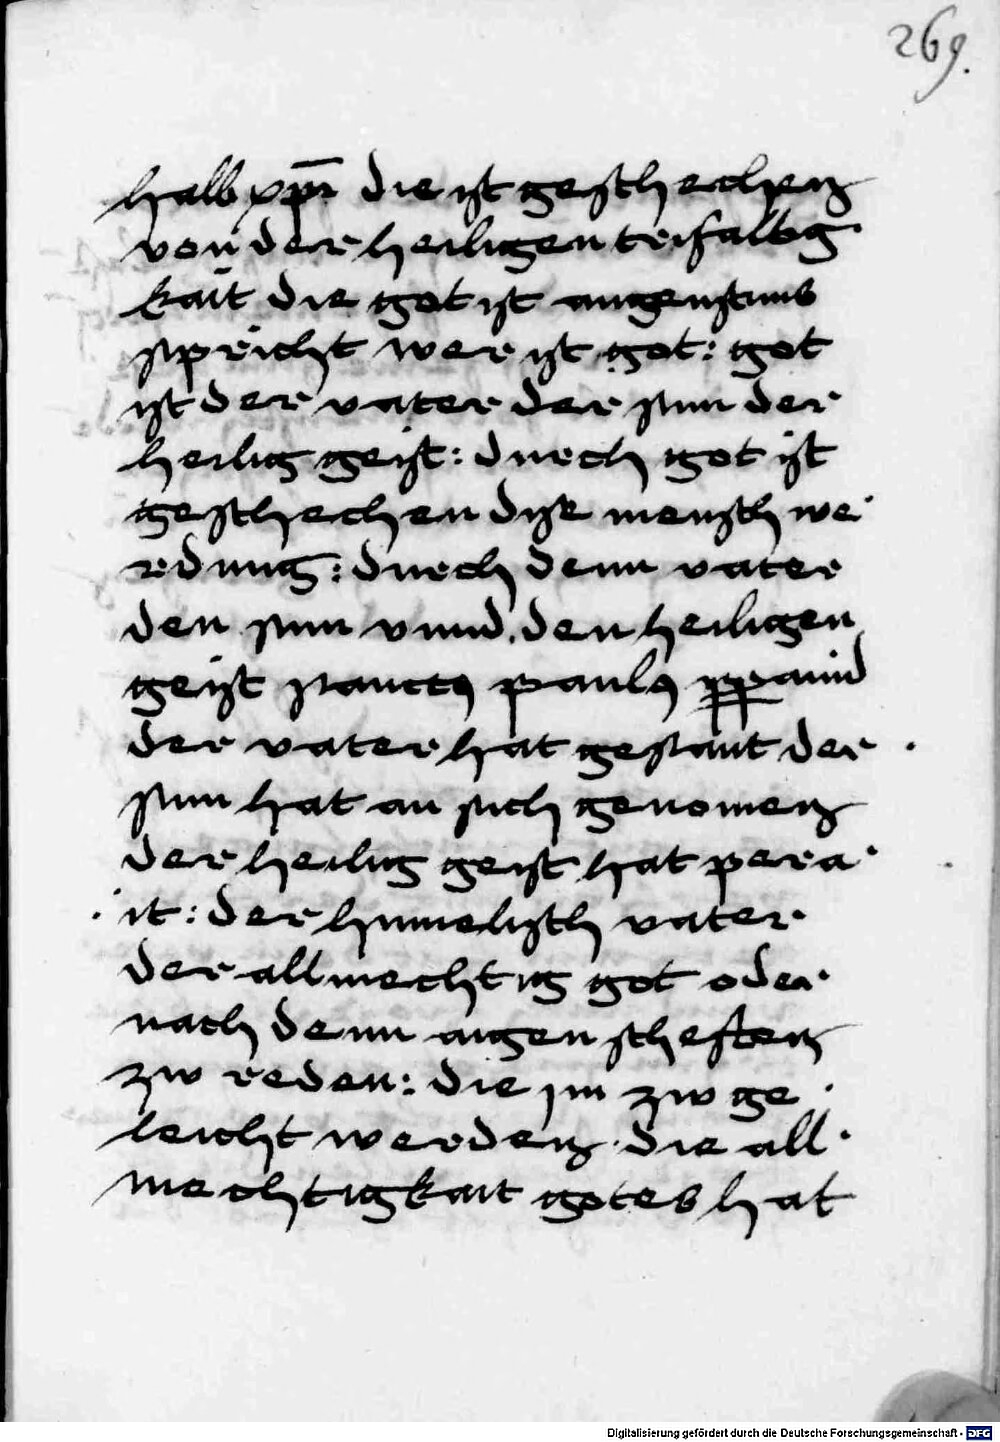 269.
halb xp̄i die ist geschechen
von der heiligen trifaltig
kait die got ist augenstinus
spricht wer ist got : got
ist der vater der sun der
heilig geist : durch got ist
geschechen dise mensch we
rdung : durch denn vater
den sun vnnd den heiligen
geist sanctus paulus
der vater hat gesant der
sun hat an sich genomen
der heilig geist hat pera
it : der himelisch vater
der allmechtig got oder
nach denn aigenscheften
zw reden : die jm zw ge
leicht werden die all
mechtigkait gotes hat
Digitalisierung gefördert durch die Deutsche Forschungsgemeinschaft - DFG